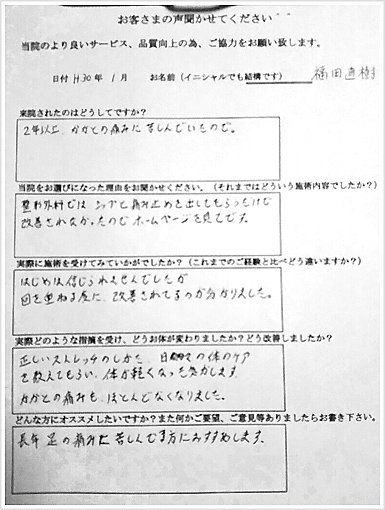 お客さまの声聞かせてください
当院のより良いサービス、品質向上の為、ご協力をお願い致します。
日付 H30年 1月 お名前（イニシャルでも結構です） 福田直樹
来院されたのはどうしてですか？
2年以上、かかとの痛みに苦しんでいたので。
当院をお選びになった理由をお聞かせください。（それまではどういう施術内容でしたか？）
整形外科では シップと痛み止めを出してもらっただけで
改善されなかったので ホームページを見てです。
実際に施術を受けてみていかがでしたか？（これまでのご経験と比べどう違いますか？）
はじめは信じられませんでしたが
回を重ねる度に、改善されてるのが分かりました。
実際どのような指摘を受け、どうお体が変わりましたか？どう改善しましたか？
正しいストレッチのしかた、日頃の体のケア
を教えてもらい、体が軽くなった気がします。
かかとの痛みも、ほとんどなくなりました。
どんな方にオススメしたいですか？また何かご要望、ご意見等ありましたらお書き下さい。
長年 足の痛みに苦しんでる方におすすめします。